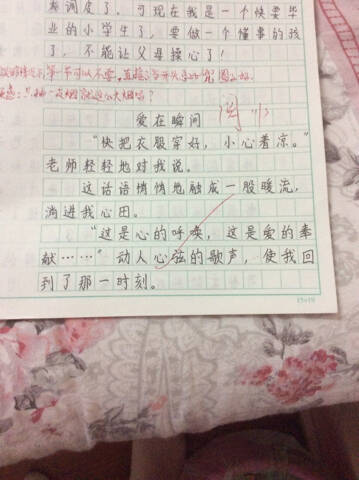 调皮了，可现在我是一个快要毕
业的小学生了，要做一个懂事的孩
了，不能让父母操心了！
爱在瞬间
“快把衣服穿好，小心着凉。”
老师轻轻地对我说。
这话语悄悄地融成一股暖流，
淌进我心田。
“这是心的呼唤，这是爱的奉
献……”动人心弦的歌声，使我回
到了那一时刻。
15×19